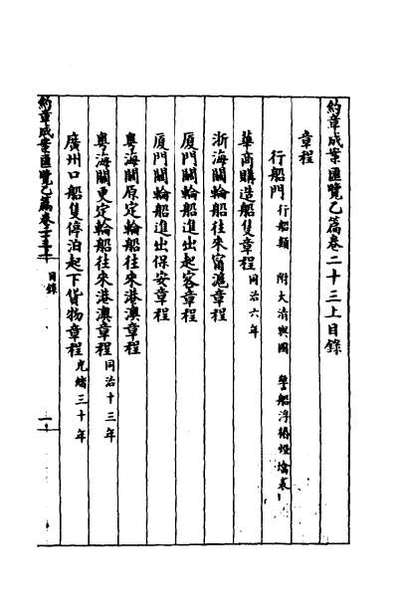 約章成案匯覽乙篇卷二十三上目錄
章程
行船門 行船類 附大清與國 警船浮樁燈塔表
華商購造船隻章程 同治六年
浙海關輪船往來甯滬章程
廈門關輪船進出起客章程
廈門關輪船進出保安章程
粵海關原定輪船往來港澳章程
粵海關更定輪船往來港澳章程 同治十三年
廣州口船隻停泊起下貨物章程 光緒三十年
約章成案匯覽乙篇卷二十三上 目錄 一